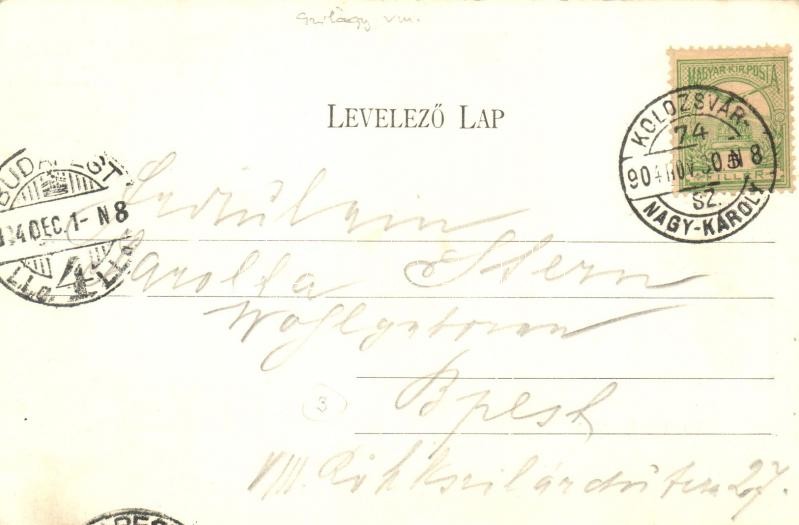 Szilágy vm.
MAGYAR·KIR·POSTA
LEVELEZŐ LAP
KOLOZSVÁR-
74
904 NOV. 30 N 8
SZ.
NAGY-KÁROLY
BUDAPEST
904 DEC. 1- N 8
4
Fräulein
Sarolta Stern
Wohlgeboren
Bpest
VIII. Rökk szilárd utca 27.
3